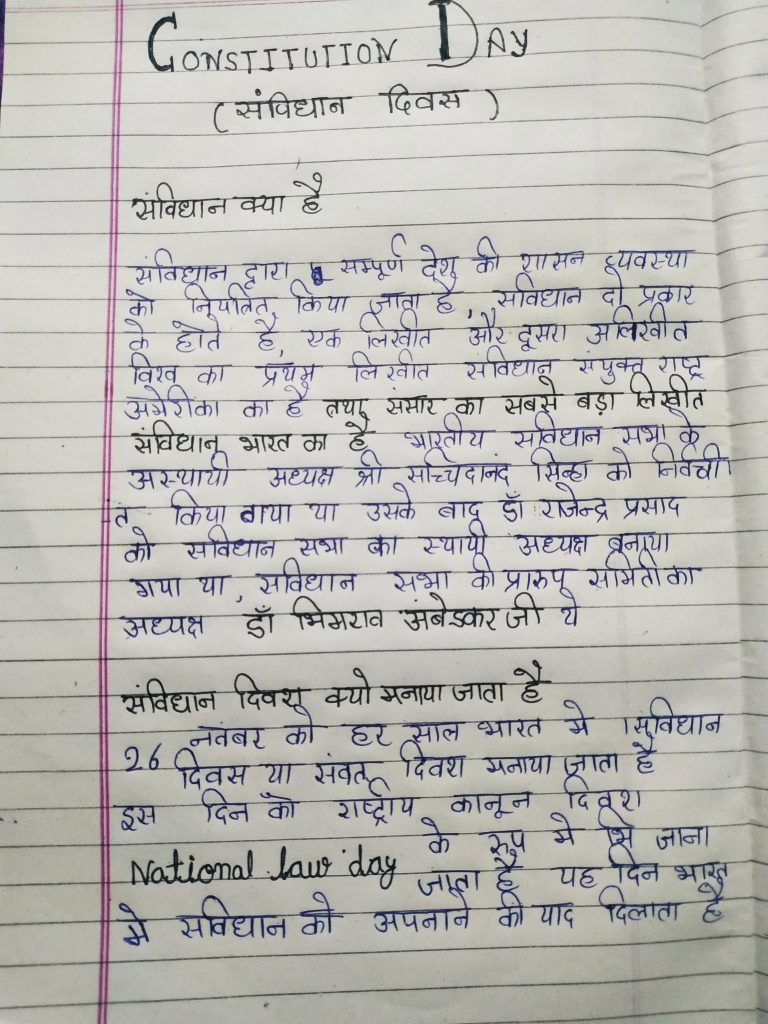 CONSTITUTION DAY
(संविधान दिवस)
संविधान क्या है
संविधान द्वारा सम्पूर्ण देश की शासन व्यवस्था
को नियंत्रित किया जाता है, संविधान दो प्रकार
के होते है, एक लिखीत और दूसरा अलिखीत
विश्व का प्रथम लिखीत संविधान संयुक्त राष्ट्र
अमेरीका का है तथा संसार का सबसे बड़ा लिखीत
संविधान भारत का है भारतीय संविधान सभा के
अस्थायी अध्यक्ष श्री सच्चिदानंद सिन्हा को निर्वची
-त किया गया था उसके बाद डॉ राजेन्द्र प्रसाद
को संविधान सभा का स्थायी अध्यक्ष बनाया
गया था, संविधान सभा की प्रारुप समिती का
अध्यक्ष डॉ भिमराव अंबेडकर जी थे
संविधान दिवस क्यो मनाया जाता है
26 नवंबर को हर साल भारत मे संविधान
दिवस या दिवश मनाया जाता है
इस दिन को राष्ट्रीय कानून दिवश
National law day के रुप मे भि जाना
जाता है यह दिन भारत
मे संविधान को अपनाने की याद दिलाता है